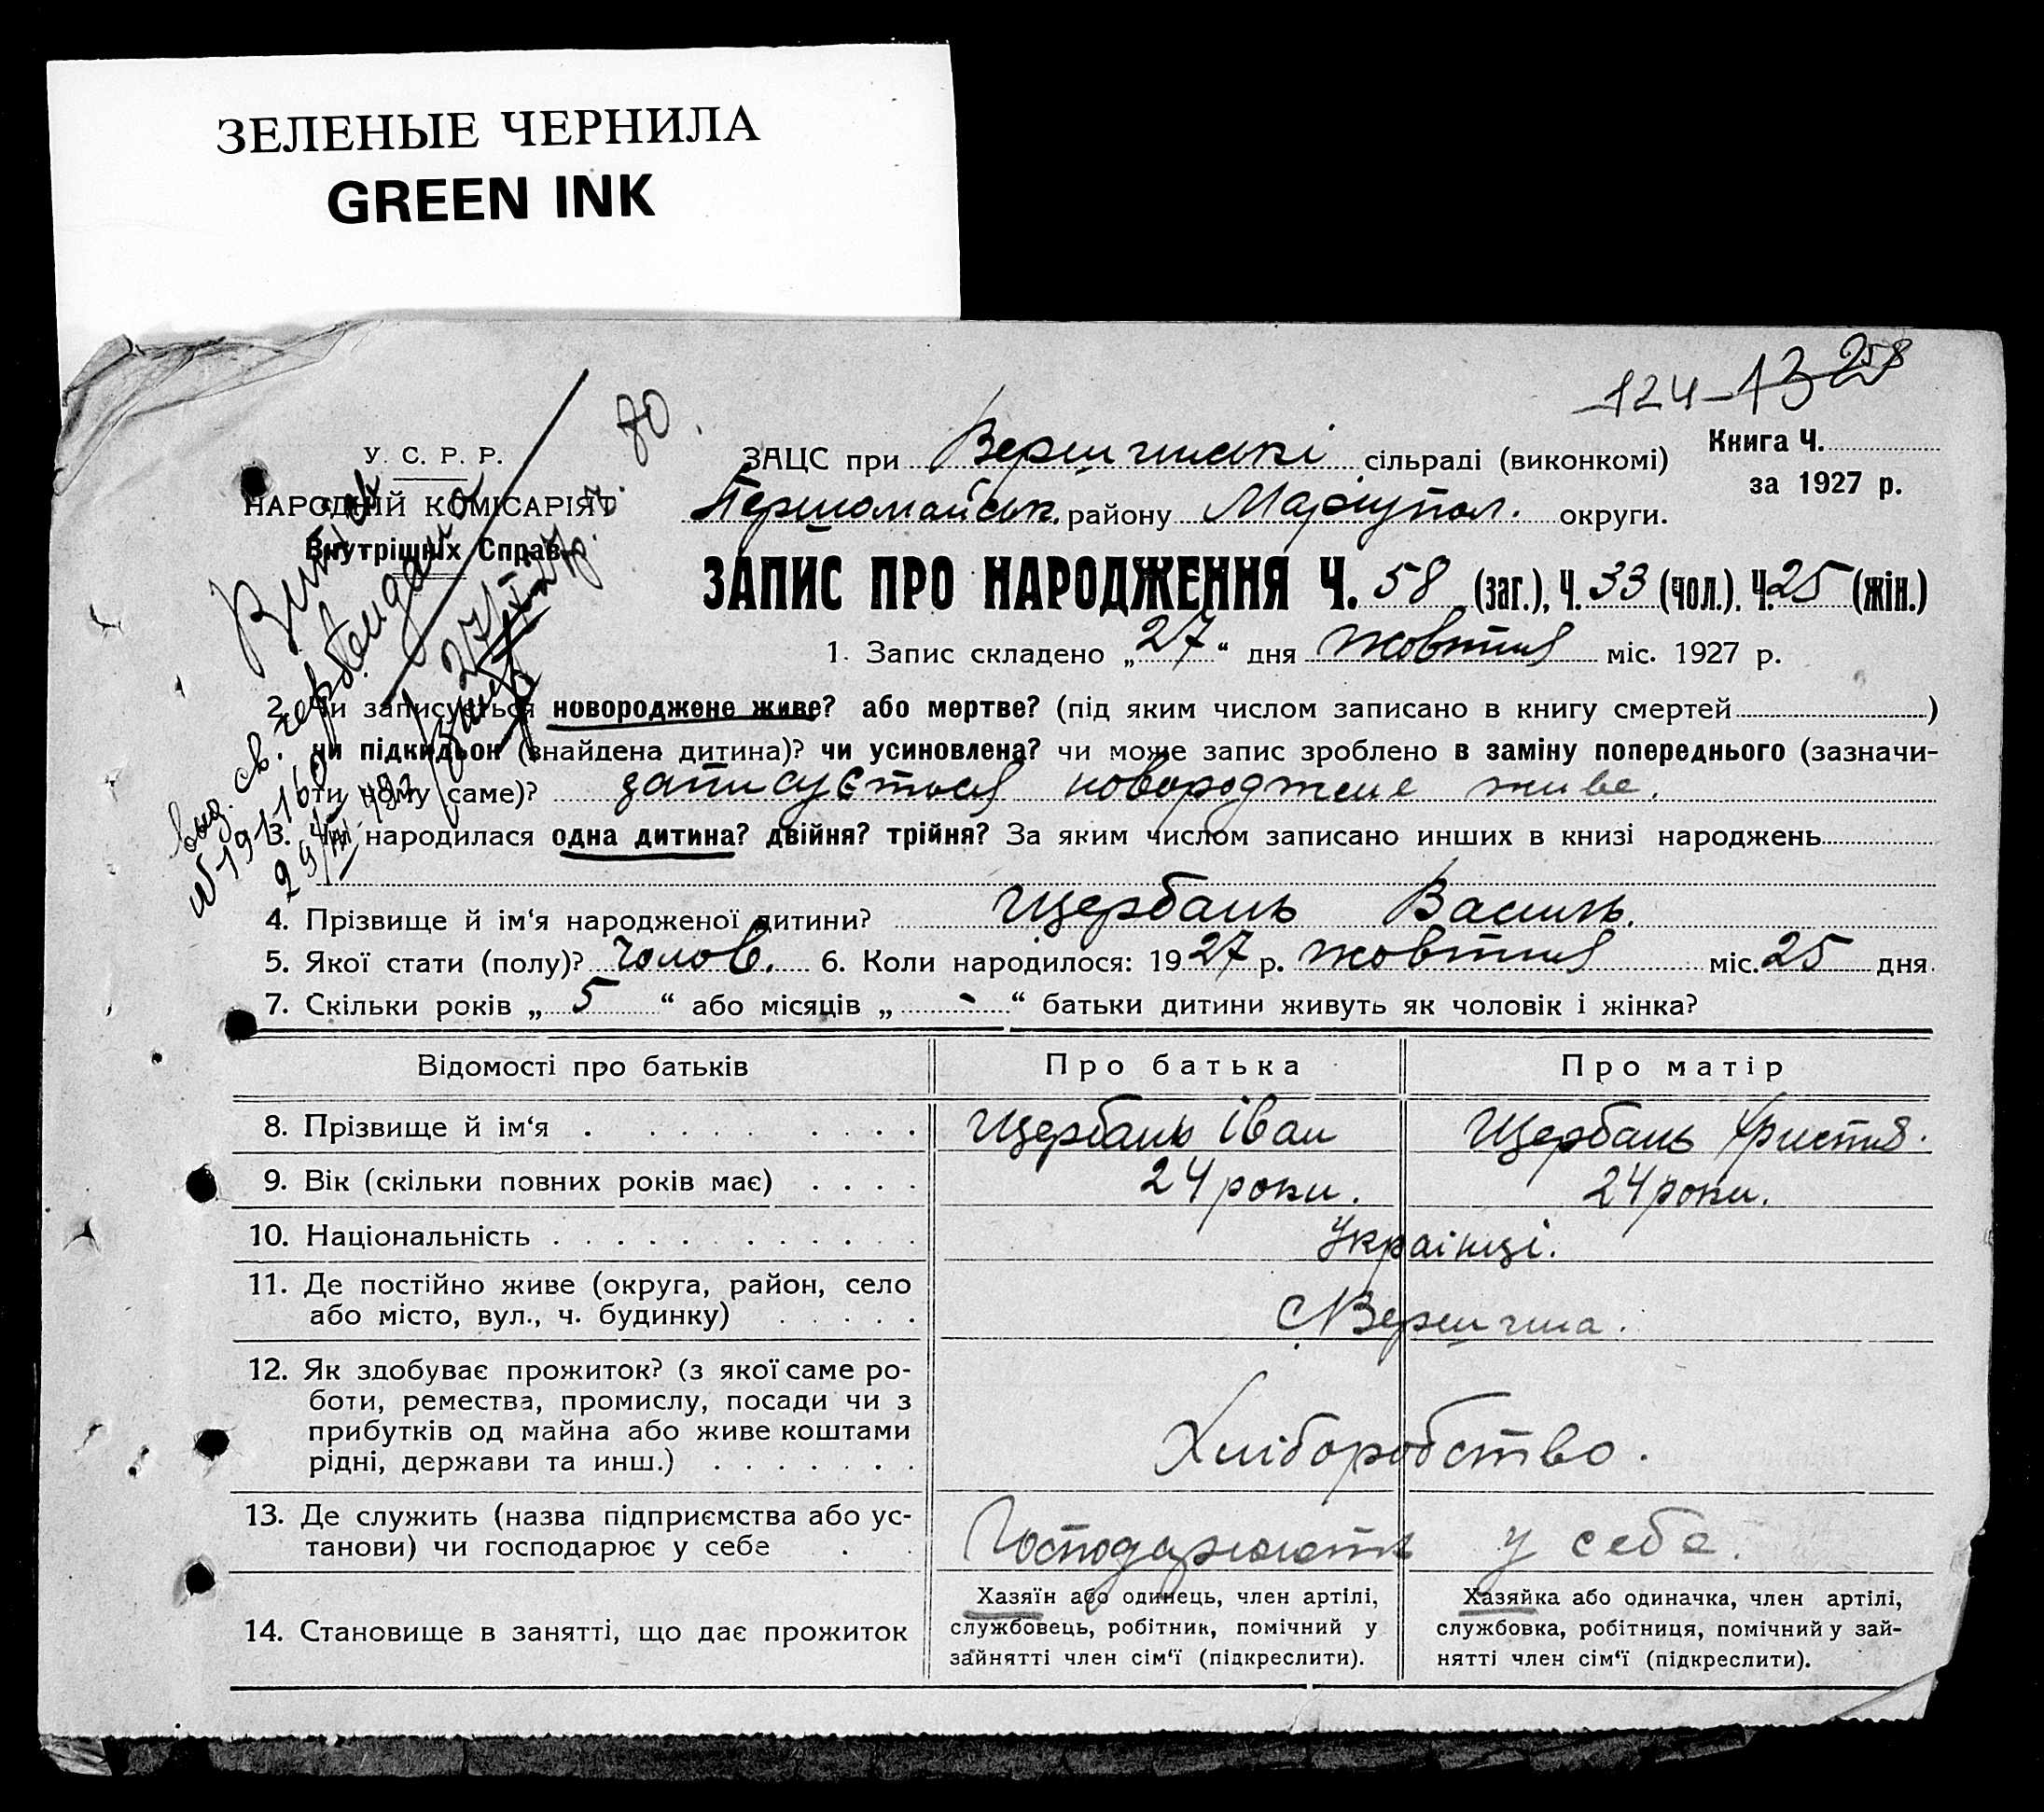 ЗЕЛЕНЫЕ ЧЕРНИЛА
GREEN INK
124-13 258
80.
У. С. Р. Р.
НАРОДНІЙ КОМІСАРІЯТ
Внутрішніх Справ
Книга Ч.
за 1927 р.
ЗАЦС при Вершинські сільраді (виконкомі)
Першомайськ. району Маріупол. округи.
ЗАПИС ПРО НАРОДЖЕННЯ Ч. 58 (заг.), Ч. 33 (чол.). Ч. 25 (жін.)
1. Запис складено „27“ дня жовтня міс. 1927 р.
2. Чи записується новороджене живе? або мертве? (під яким числом записано в книгу смертей)
чи підкидьок (знайдена дитина)? чи усиновлена? чи може запис зроблено в заміну попереднього (зазначи-
ти чому саме)? записується новороджене живе.
3. Чи народилася одна дитина? двійня? трійня? За яким числом записано инших в книзі народжень
4. Прізвище й ім‘я народженої дитини? Щербань Василь.
5. Якої стати (полу)? чолов. 6. Коли народилося: 1927 р. жовтня міс. 25 дня
7. Скільки років „5“ або місяців „-“ батьки дитини живуть як чоловік і жінка?
Відомості про батьків Про батька Про матір
8. Прізвище й ім‘я Щербань Іван Щербань Христя.
9. Вік (скільки повних років має) 24 роки. 24 роки.
10. Національність Українці.
11. Де постійно живе (округа, район, село
або місто, вул., ч. будинку) с. Вершина.
12. Як здобуває прожиток? (з якої саме ро-
боти, ремества, промислу, посади чи з
прибутків од майна або живе коштами
рідні, держави та инш.) Хліборобство.
13. Де служить (назва підприємства або ус-
танови) чи господарює у себе Господарюють у себе.
14. Становище в занятті, що дає прожиток
Хазяїн або одинець, член артілі,
службовець, робітник, помічний у
зайнятті член сім‘ї (підкреслити).
Хазяйка або одиначка, член артілі,
службовка, робітниця, помічний у зай-
нятті член сім‘ї (підкреслити).